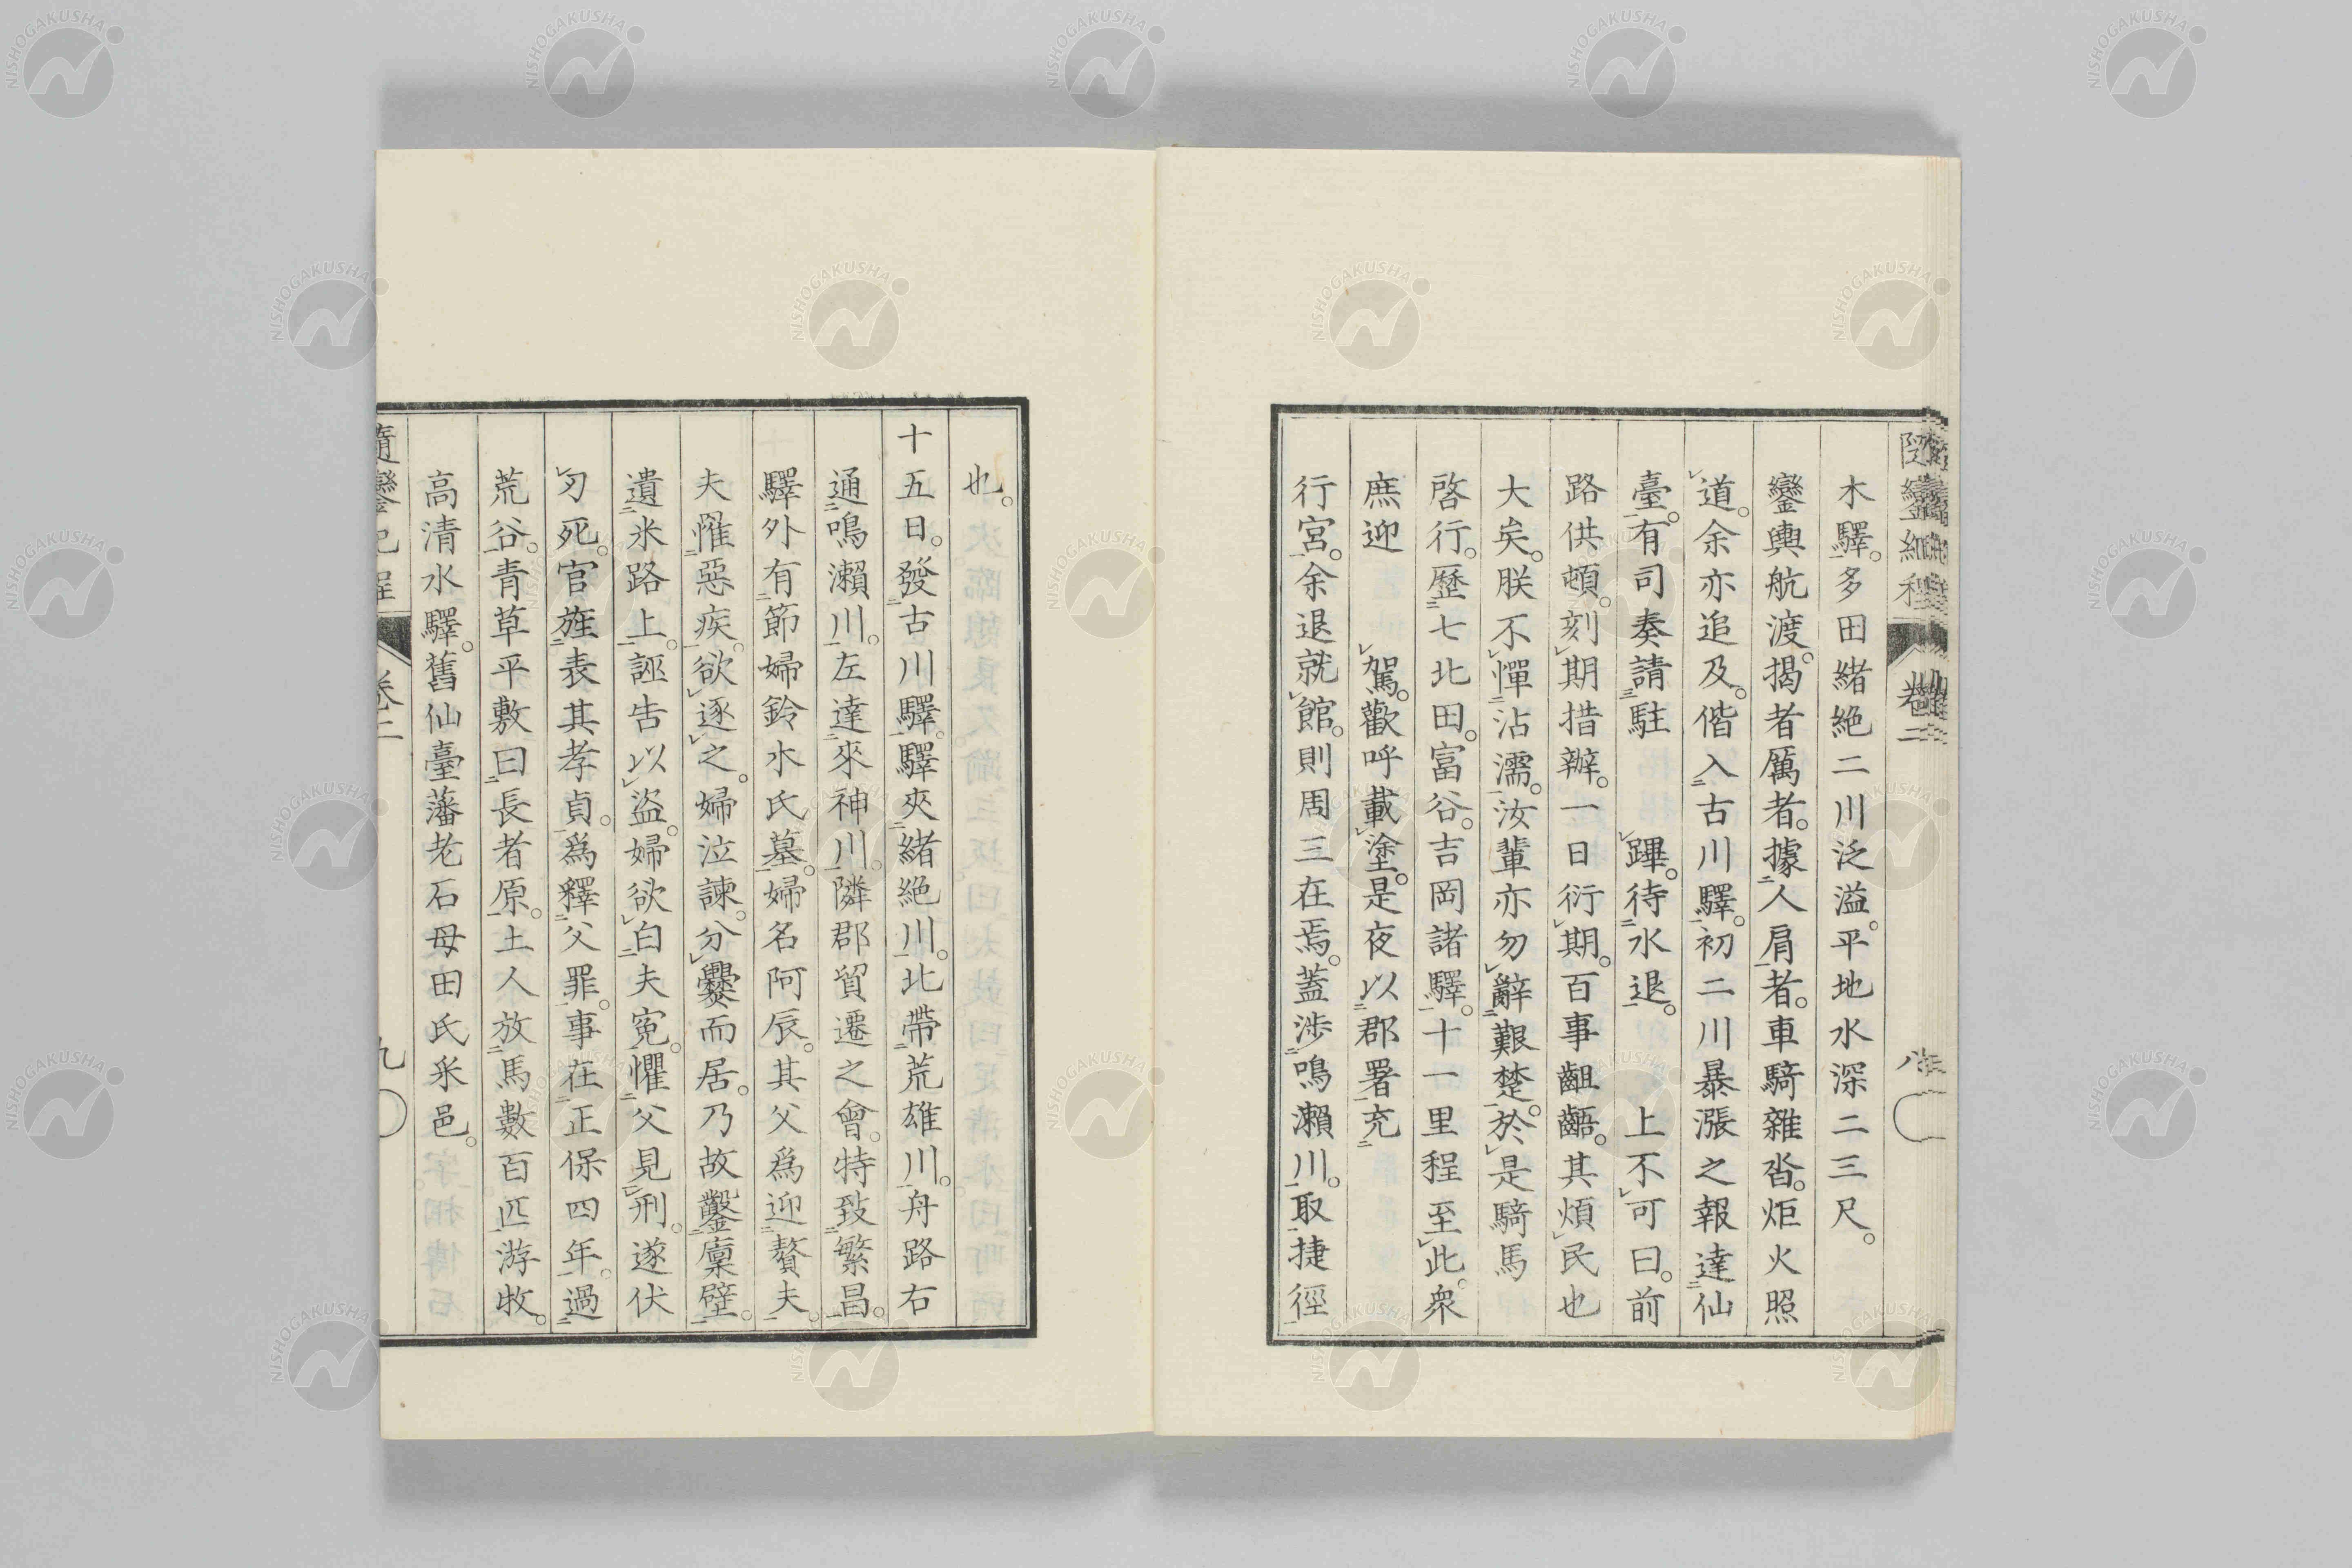 木驛。多田緒絶二川泛溢。平地水深二三尺。
鑾輿航渡。揭者厲者。據人肩者。車騎雜沓。炬火照
道。余亦追及。偕入古川驛。初二川暴漲之報達仙
臺。有司奏請駐 蹕。待水退。 上不可曰。前
路供頓。刻期措辦。一日衍期。百事齟齬。其煩民也
大矣。朕不憚沾濡。汝輩亦勿辭艱楚。於是騎馬
啓行。歷七北田。富谷。吉岡諸驛。十一里程至此。衆
庶迎 駕。歡呼載塗。是夜以郡署充
行宮。余退就館。則周三在焉。蓋涉鳴瀨川。取捷徑
也。
十五日。發古川驛。驛夾緒絶川。北帶荒雄川。舟路右
通鳴瀨川。左達來神川。隣郡貿遷之會。特致繁昌。
驛外有節婦鈴水氏墓。婦名阿辰。其父爲迎贅夫。
夫罹惡疾。欲逐之。婦泣諫。分爨而居。乃故鑿廩壁。
遺米路上。誣告以盜。婦欲白夫冤。懼父見刑。遂伏
刃死。官旌表其孝貞。爲釋父罪。事在正保四年。過
荒谷。青草平敷曰長者原。土人放馬數百匹游牧。
高清水驛。舊仙臺藩老石母田氏采邑。
隨鑾紀程
卷二
九
NISHOGAKUSHA